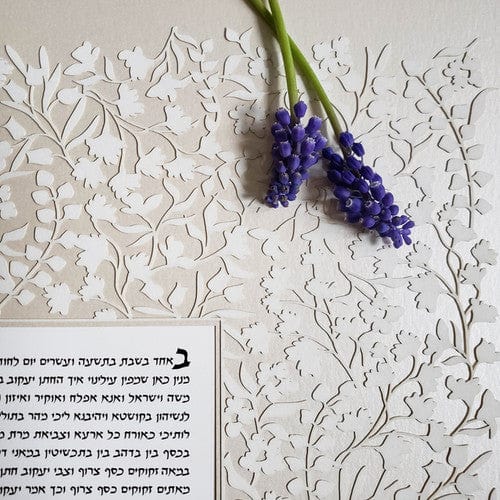 באחד בשבת בתשעה ועשרים יום לחוד
מנין כאן שמפין עילינוי איך החתן יעקוב ב
משה וישראל ואנא אפלח ואוקיר ואיזון
לנשיהון בקושטא ויהיבנא ליכי מהר בתולי
לותיכי כאורח כל ארעא וצביאת מרת מ
בכסף בין בדהב בין בתכשיטין במאני ד
במאה זקוקים כסף צרוף וצבי יעקוב חתן
מאתים זקוקים כסף צרוף וכך אמר יעקוב